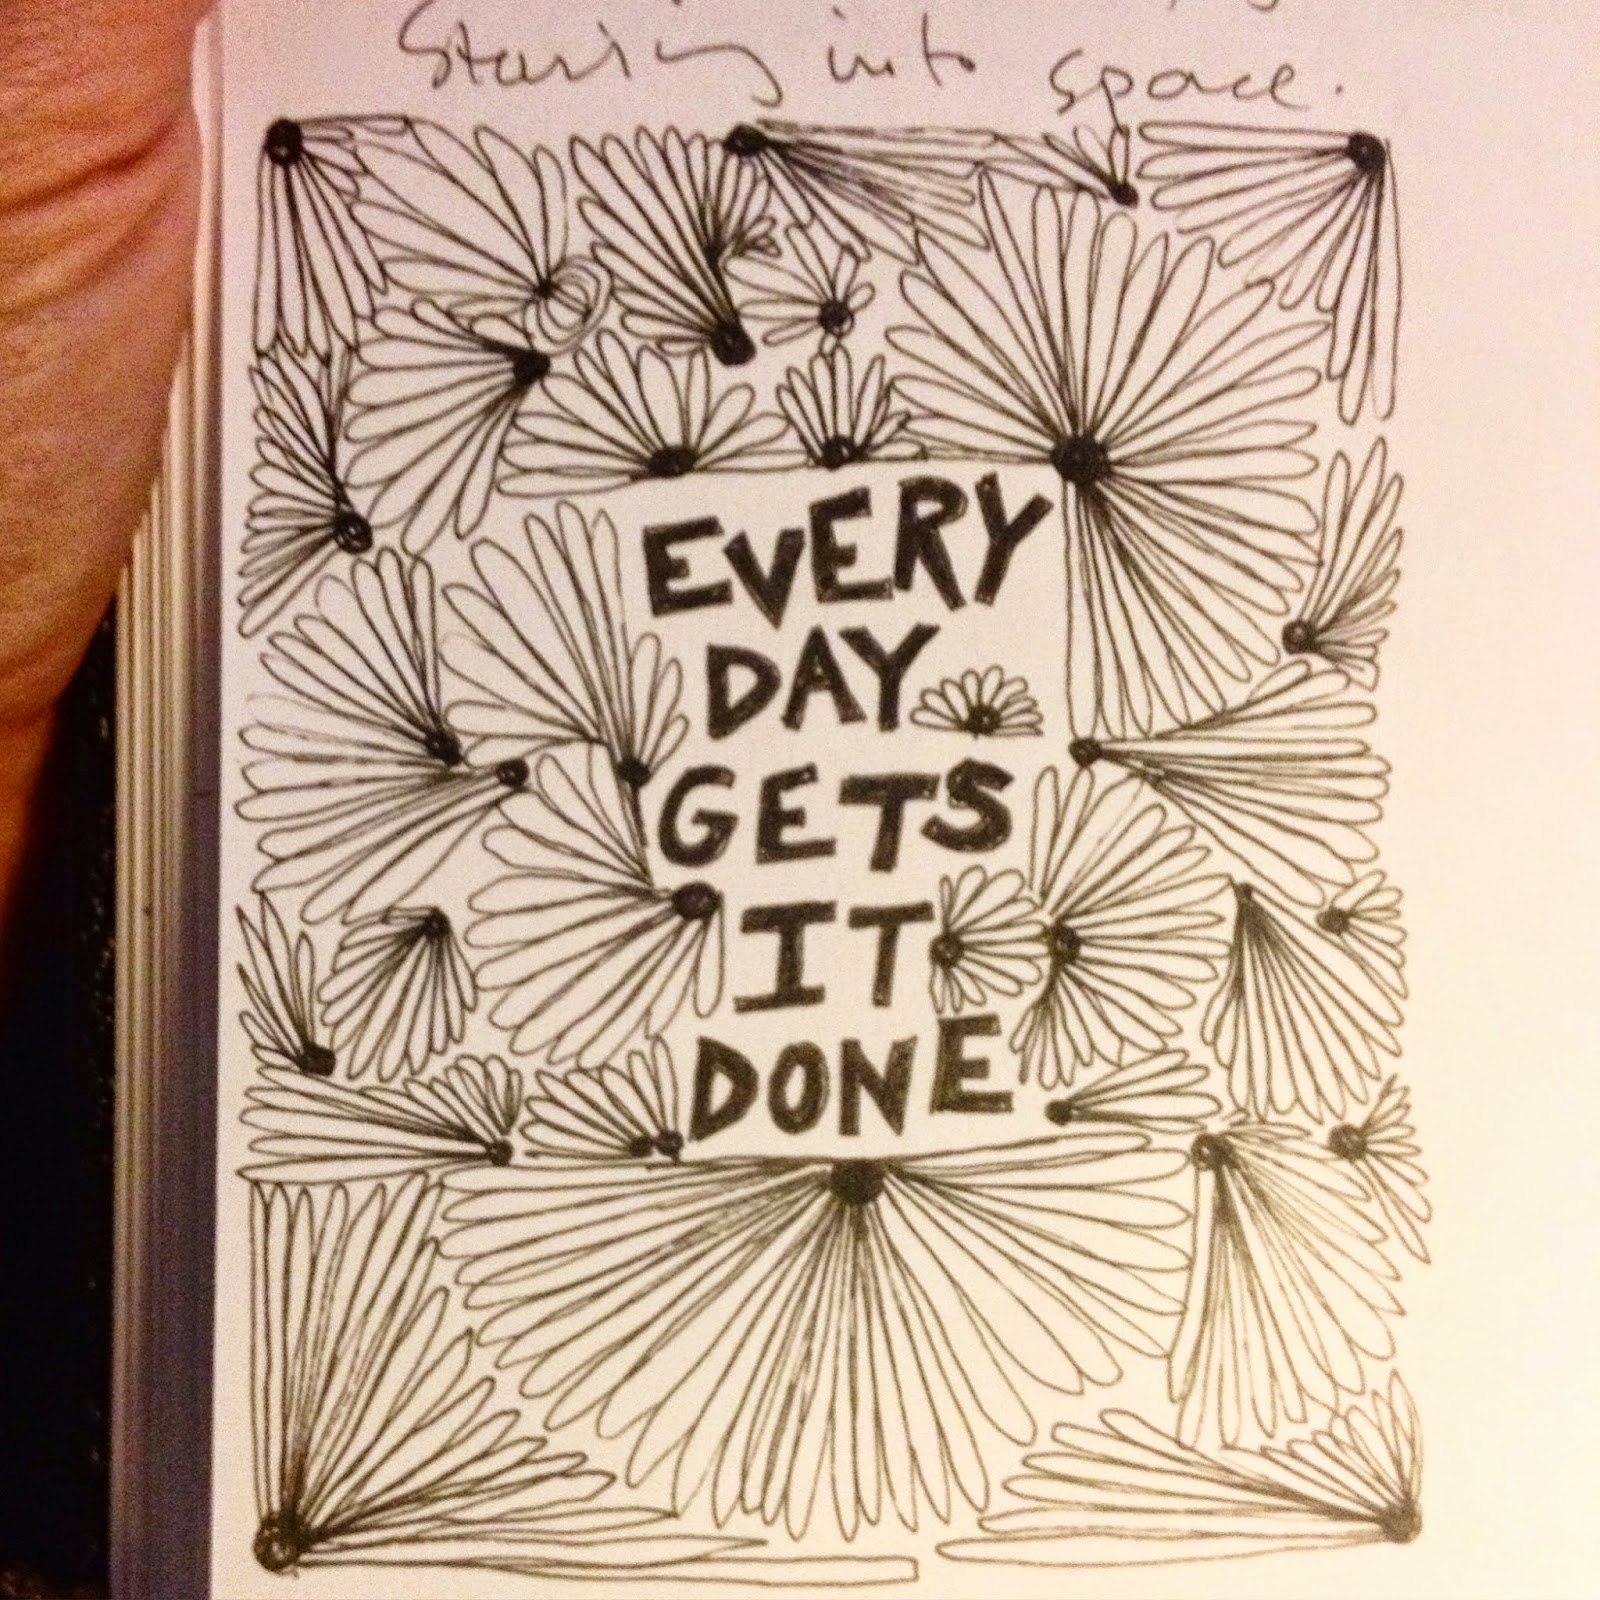 Staring into space.
EVERY
DAY
GETS
IT
DONE